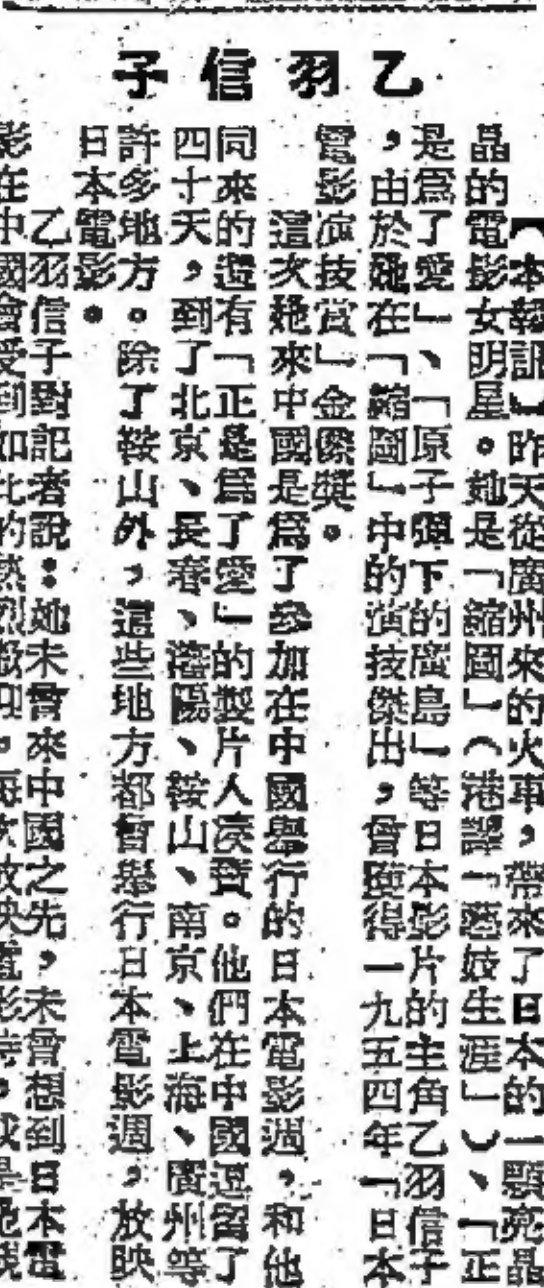 乙羽信子
【本報訊】昨天從廣州來的火車，帶來了日本的一顆亮晶
晶的電影女明星。她是「縮圖」（港譯「藝妓生涯」）、「正
是爲了愛」、「原子彈下的廣島」等日本影片的主角乙羽信子
，由於她在「縮圖」中的演技傑出，曾獲得一九五四年「日本
電影演技賞」金像獎。
這次她來中國是爲了參加在中國舉行的日本電影週，和他
同來的還有「正是爲了愛」的製片人湊寶。他們在中國逗留了
四十天，到了北京、長春、瀋陽、鞍山、南京、上海、廣州等
許多地方。除了鞍山外，這些地方都曾舉行日本電影週，放映
日本電影。
乙羽信子對記者說：她未曾來中國之先，未曾想到日本電
影在中國會受到如此的熱烈歡迎。每次放映電影時，